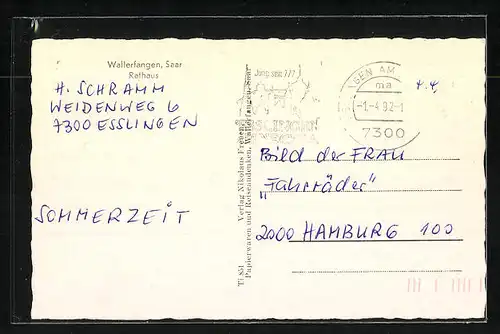 Wallerfangen, Saar
Rathaus
H. SCHRAMM
WEIDENWEG 6
7300 ESSLINGEN
SOMMERZEIT
Verlag Nikolaus
Papierwaren und Reiseandenken, Wallerfangen, Saar
Jung seit 777
GEN AM
ma
-1.-4.92-
7300
4.4.
Bild der FRAU
"Fahrräder"
2000 HAMBURG 100